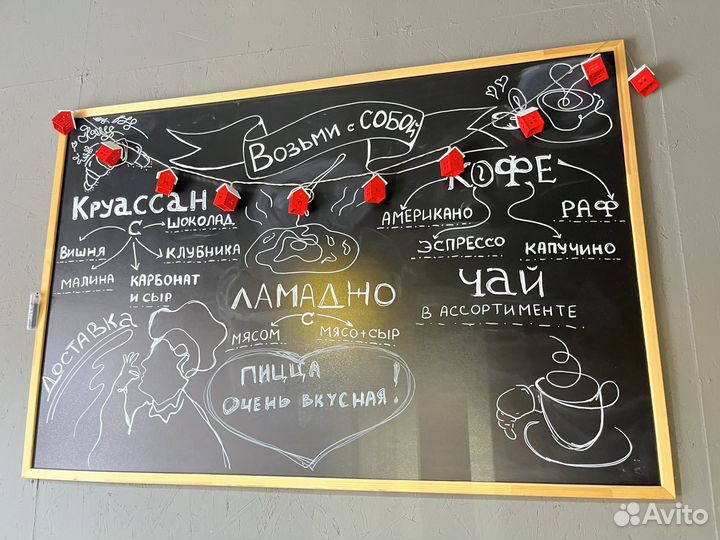 Возьми с СОБОЙ
Круассан
с
ШОКОЛАД
ВИШНЯ
КЛУБНИКА
МАЛИНА
КАРБОНАТ
И СЫР
ЛАМАДЖО
с
МЯСОМ
МЯСО+СЫР
ПИЦЦА
ОЧЕНЬ ВКУСНАЯ!
КОФЕ
АМЕРИКАНО
РАФ
ЭСПРЕССО
КАПУЧИНО
ЧАЙ
В АССОРТИМЕНТЕ
ДОСТАВКА
Avito